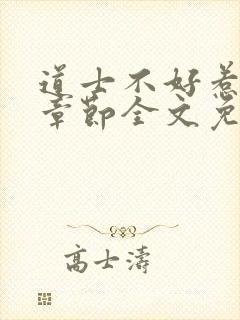 道士不好惹
章节全文免
高士濤